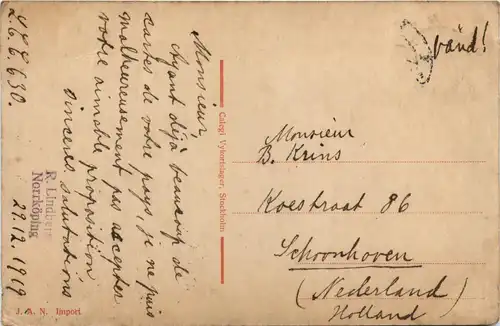 Monsieur
Ayant déjà beaucoup de
cartes de votre pays, je ne puis
malheureusement pas accepter
votre aimable proposition
Sincères salutations
29.12.1919
R. Lindberg
Norrköping
L.C.C. 630.
J. A. N. Import.
Calegi Vykortslager, Stockholm
vänd!
Monsieur
B. Krins
Koestraat 86
Schoonhoven
(Nederland)
Holland